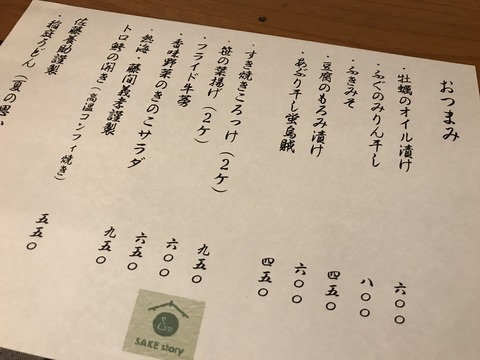 おつまみ
・牡蠣のオイル漬け 六〇〇
・ふぐのみりん干し 八〇〇
・ふきみそ 四五〇
・豆腐のもろみ漬け 六〇〇
・あぶり干し蛍烏賊 四五〇
・すき焼きころっけ(2ケ) 九五〇
・笹の葉揚げ(2ケ) 六〇〇
・フライド牛蒡 六五〇
・香味野菜のきのこサラダ 九五〇
・熱海・藤間義孝謹製
トロ鯵の開き(高温コンフィ焼き) 五五〇
佐藤養助謹製
・稲庭うどん(夏の
SAKE story